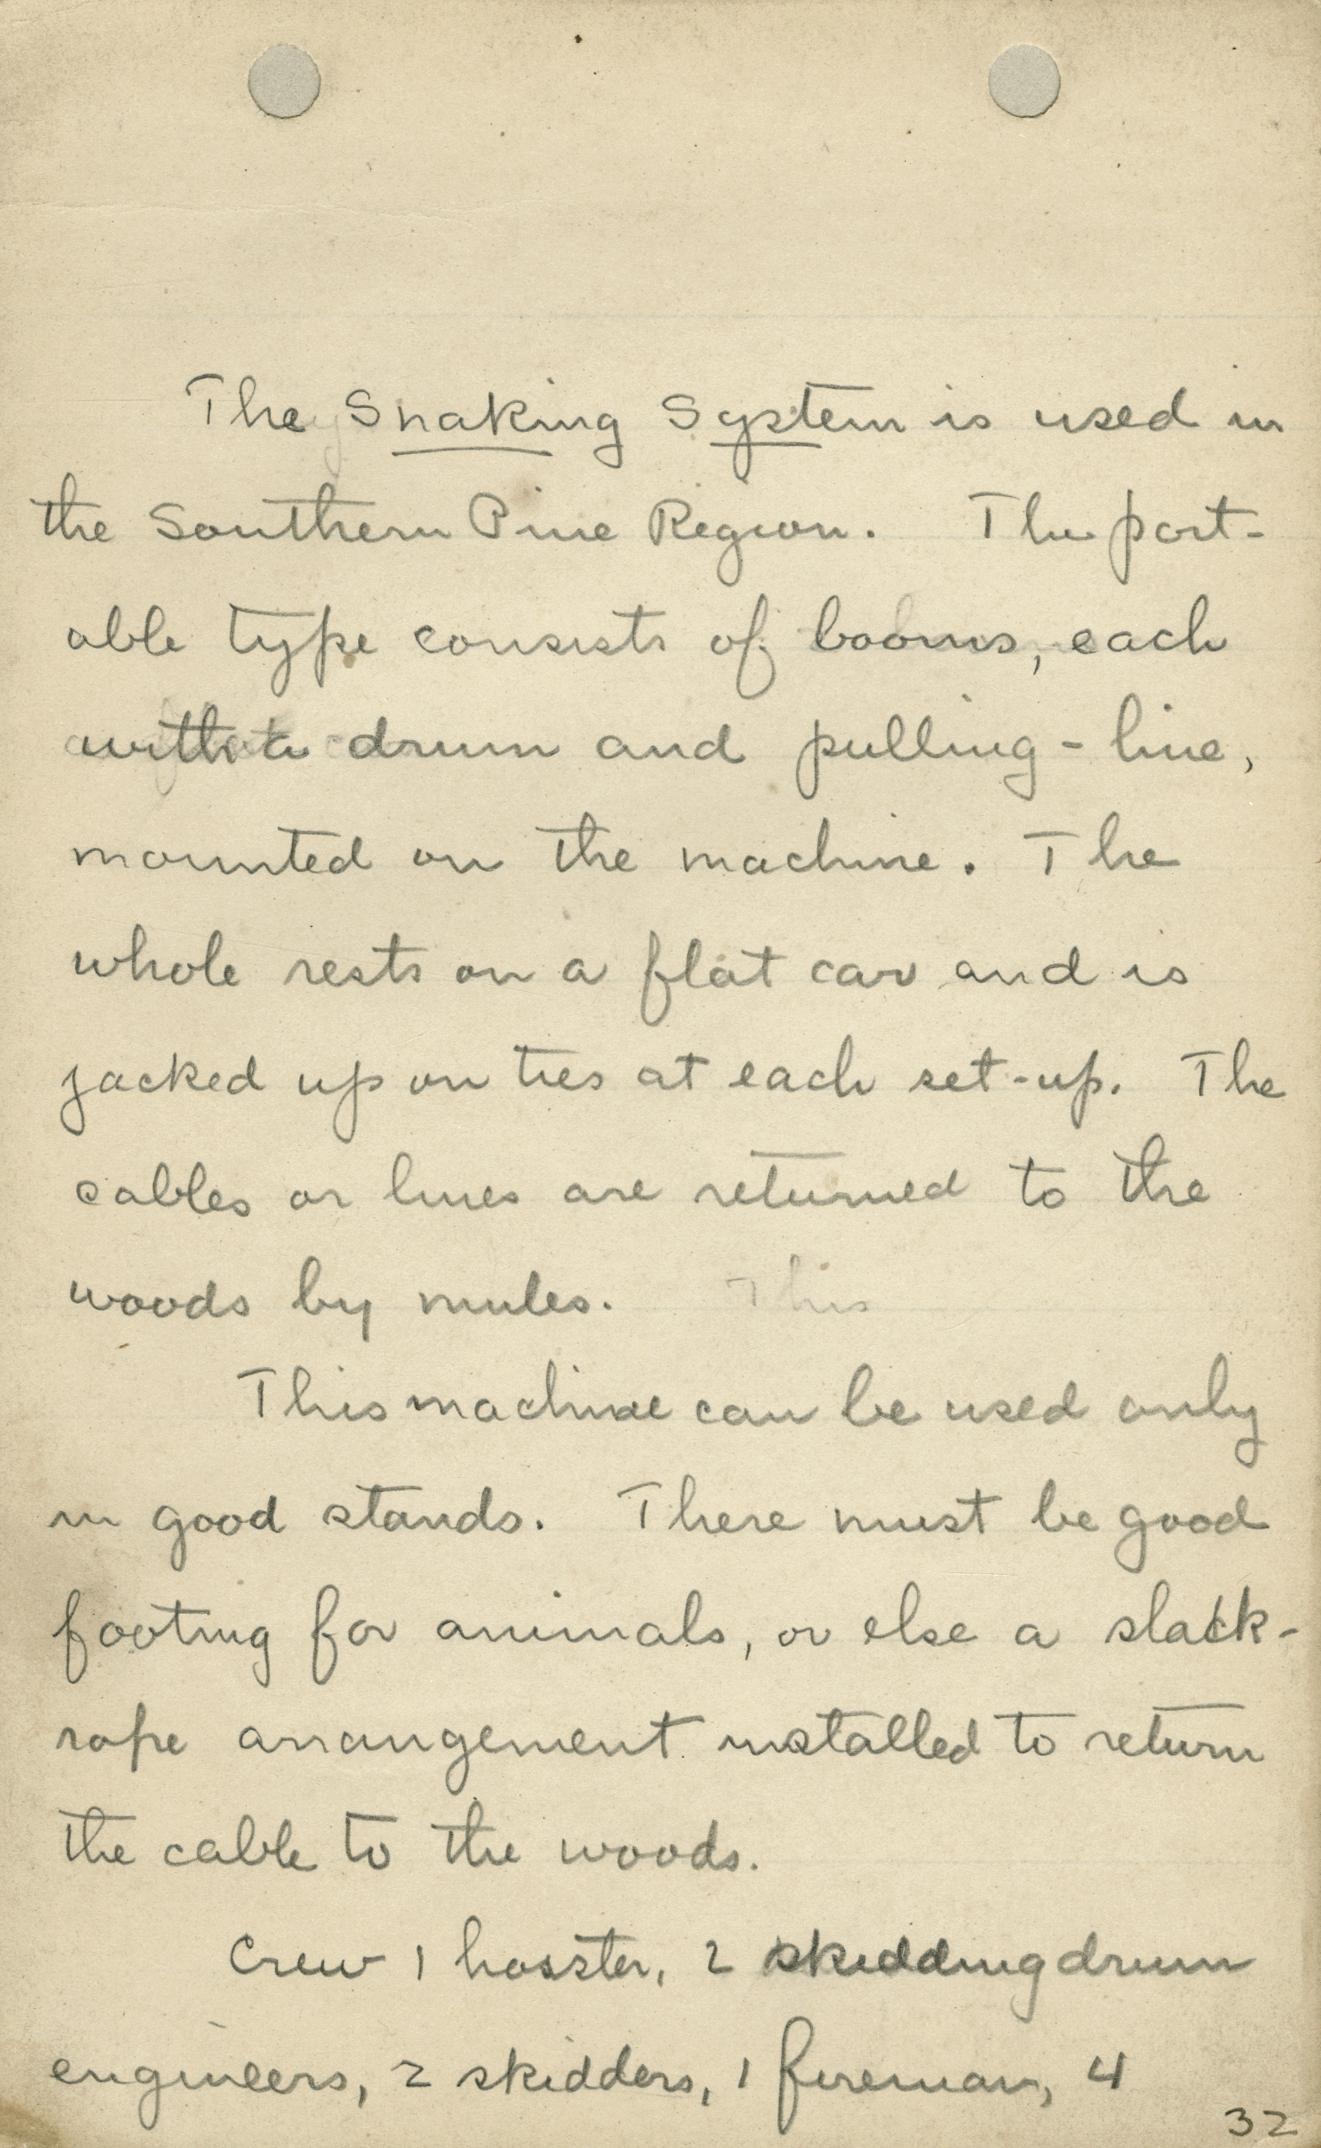 The Snaking System is used in
the Southern Pine Region. The port-
able type consists of booms, each
with a drum and pulling-line,
mounted on the machine. The
whole rests on a flat car and is
jacked up on ties at each set-up. The
cables or lines are returned to the
woods by mules. This
This machine can be used only
in good stands. There must be good
footing for animals, or else a slack-
rope arrangement installed to return
the cable to the woods.
Crew 1 hosster, 2 skidding drum
engineers, 2 skidders, 1 fireman, 4
32